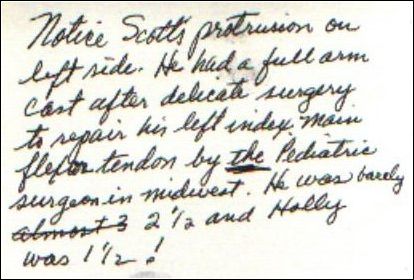 Notice Scott's protrusion on
left side. He had a full arm
cast after delicate surgery
to repair his left index main
flexor tendon by the Pediatric
surgeon in midwest. He was barely
almost 3 2 1/2 and Holly
was 1 1/2!